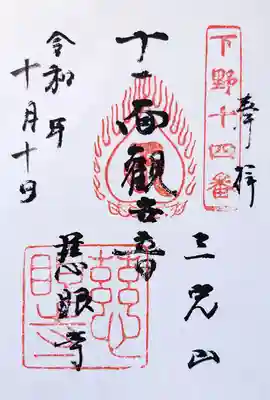 奉拝
下野十四番
三光山
十一面観世音
慈眼寺
令和年
十月十日